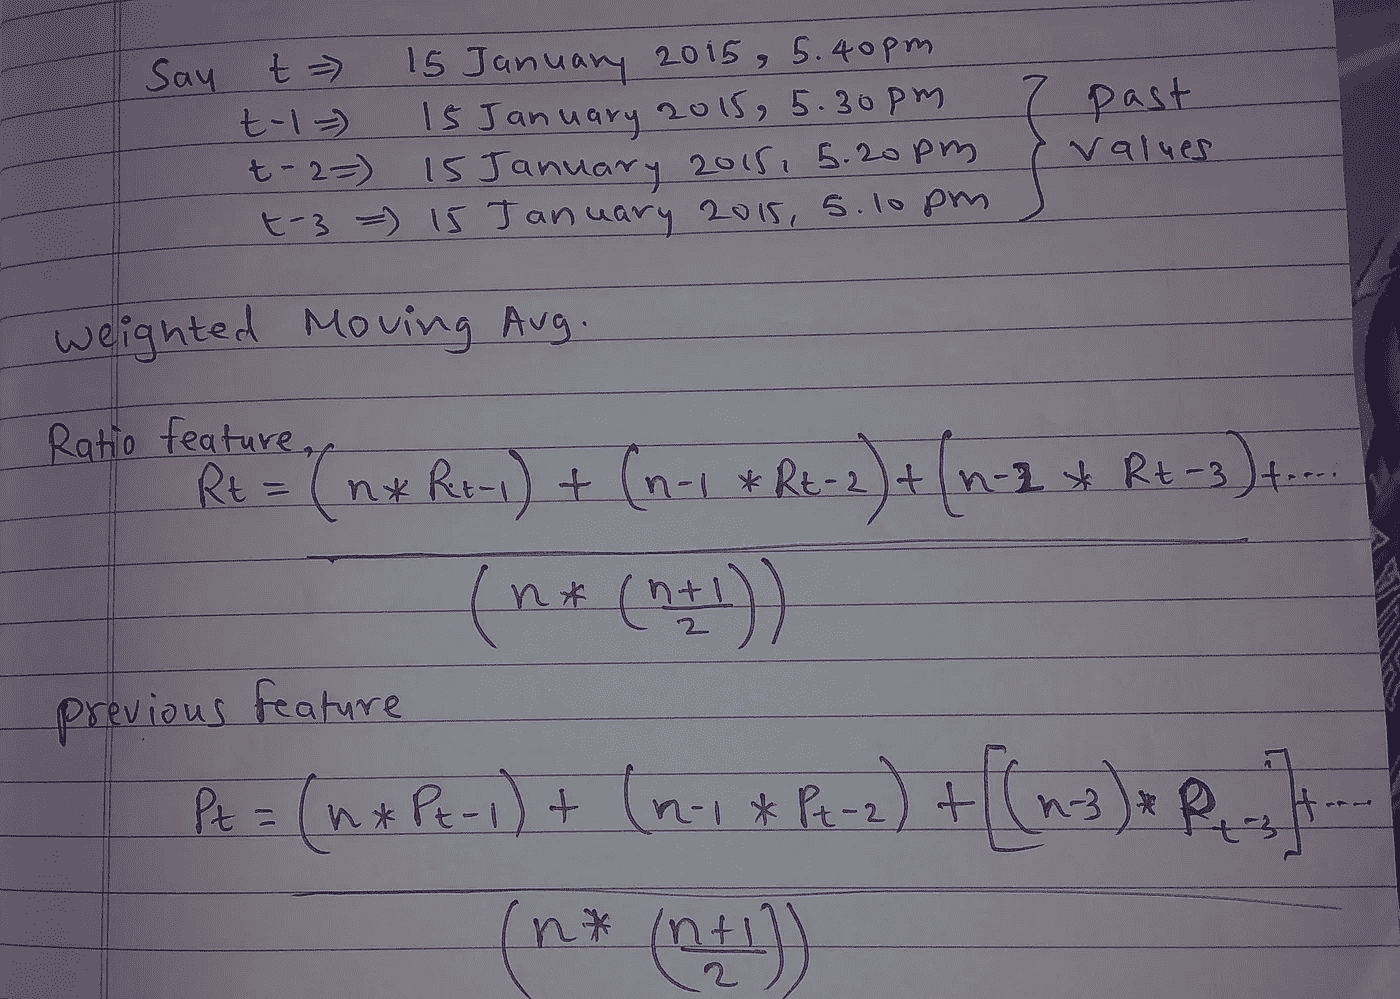 Say t ⇒ 15 January 2015, 5.40pm
t-1 ⇒ 15 January 2015, 5.30 pm
t-2 ⇒ 15 January 2015, 5.20 pm
t-3 ⇒ 15 January 2015, 5.10 pm
} past values
Weighted Moving Avg.
Ratio feature,
Rt = (n* Rt-1) + (n-1 * Rt-2) + (n-2 * Rt-3) + ....
(n* (n+1/2))
previous feature
Pt = (n* Pt-1) + (n-1 * Pt-2) + [(n-3)* Pt-3] + ----
(n* (n+1/2))